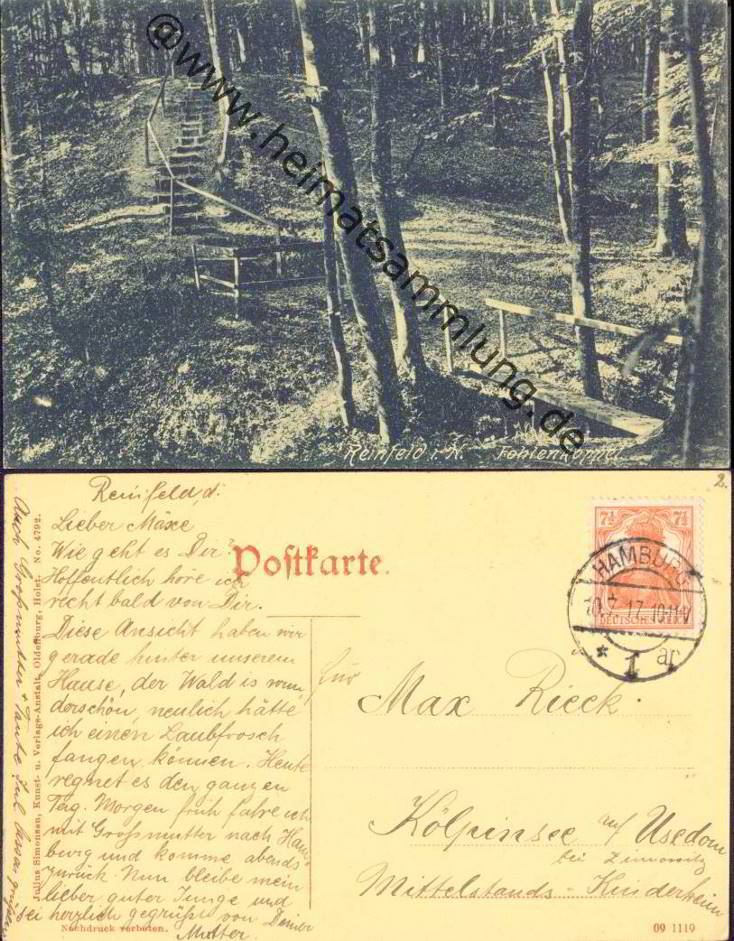 @www.heimatsammlung.de
Reinfeld i. H. Fohlenkoppel
2.
Reinfeld, d.
Lieber Mäxe
Wie geht es Dir?
Hoffentlich höre ich
recht bald von Dir.
Diese Ansicht haben wir
gerade hinter unserem
Hause, der Wald is wun
derschön, neulich hätte
ich einen Laubfrosch
fangen können. Heute
regnet es den ganzen
Tag. Morgen früh fahre ich
mit Großmutter nach Ham
burg und komme abends
zurück. Nun bleibe mein
lieber guter Junge und
sei herzlich gegrüßt von Deiner
Mutter.
Auch Großmutter + Tante
grüßen
Julius Simonsen, Kunst- u. Verlags-Anstalt, Oldenburg, Holst. No. 4792.
Nachdruck verboten.
Postkarte.
7½ 7½
DEUTSCHES REICH
HAMBURG
10.7.17.10-11V
* 1 ar
für
Max Rieck.
Kölpinsee auf Usedom
bei Zinnowitz
Mittelstands-Kinderheim
09 1119